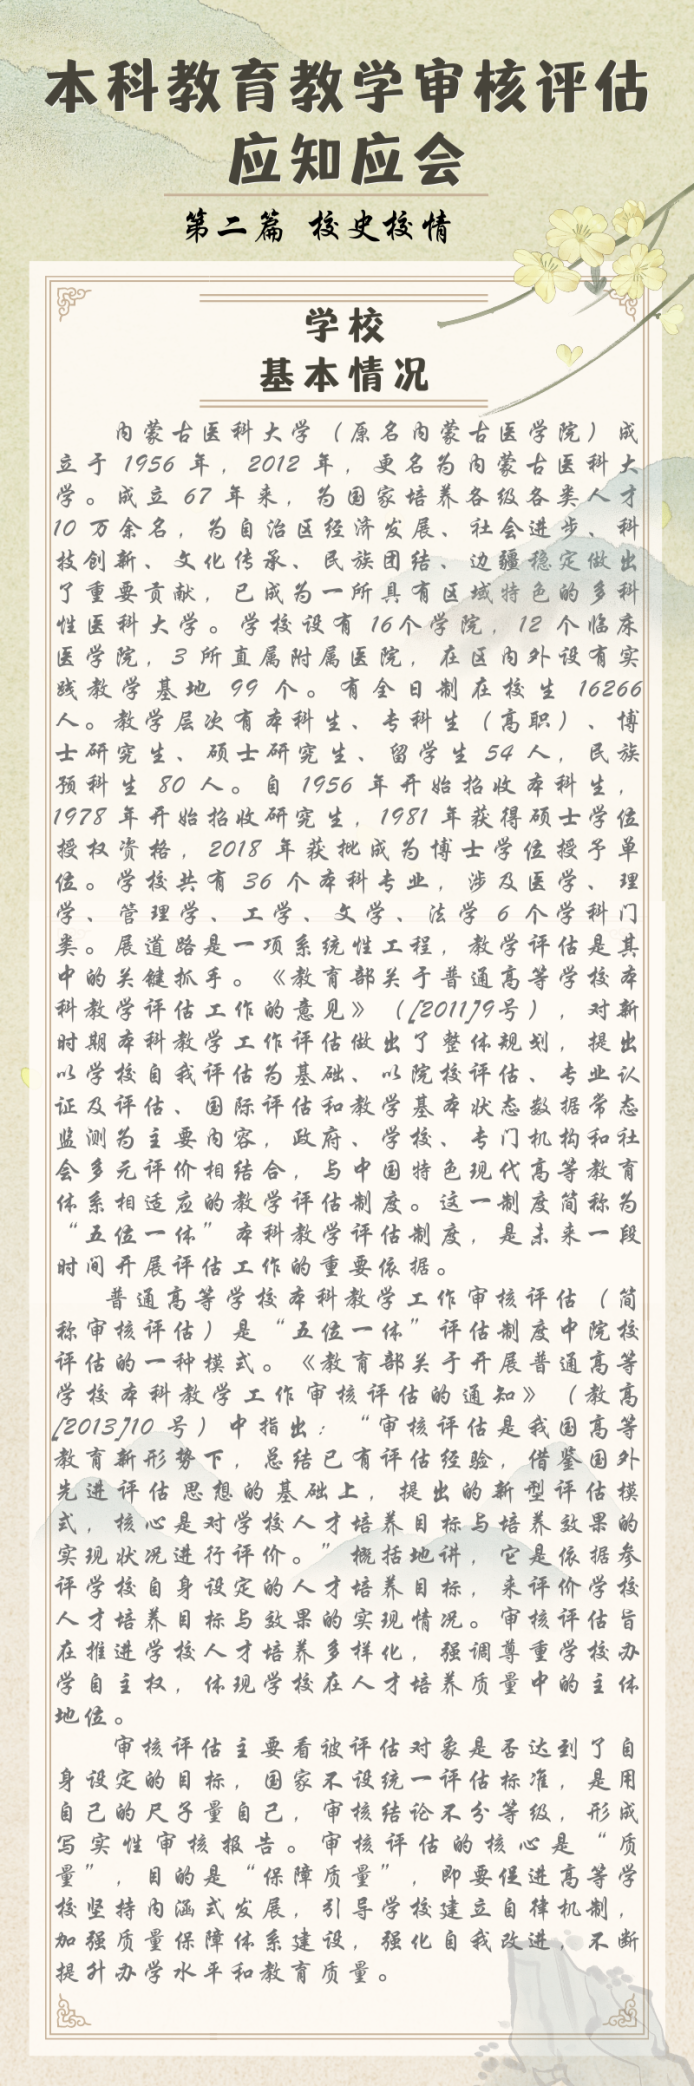 本科教育教学审核评估
应知应会
第二篇 校史校情
学校
基本情况
内蒙古医科大学（原名内蒙古医学院）成
立于 1956 年，2012 年，更名为内蒙古医科大
学。成立 67 年来，为国家培养各级各类人才
10 万余名，为自治区经济发展、社会进步、科
技创新、文化传承、民族团结、边疆稳定做出
了重要贡献，已成为一所具有区域特色的多科
性医科大学。学校设有 16个学院，12 个临床
医学院，3 所直属附属医院，在区内外设有实
践教学基地 99 个。有全日制在校生 16266
人。教学层次有本科生、专科生（高职）、博
士研究生、硕士研究生、留学生 54 人，民族
预科生 80 人。自 1956 年开始招收本科生，
1978 年开始招收研究生，1981 年获得硕士学位
授权资格，2018 年获批成为博士学位授予单
位。学校共有 36 个本科专业，涉及医学、理
学、管理学、工学、文学、法学 6 个学科门
类。展道路是一项系统性工程，教学评估是其
中的关键抓手。《教育部关于普通高等学校本
科教学评估工作的意见》（[2011]9号），对新
时期本科教学工作评估做出了整体规划，提出
以学校自我评估为基础、以院校评估、专业认
证及评估、国际评估和教学基本状态数据常态
监测为主要内容，政府、学校、专门机构和社
会多元评价相结合，与中国特色现代高等教育
体系相适应的教学评估制度。这一制度简称为
“五位一体”本科教学评估制度，是未来一段
时间开展评估工作的重要依据。
普通高等学校本科教学工作审核评估（简
称审核评估）是“五位一体”评估制度中院校
评估的一种模式。《教育部关于开展普通高等
学校本科教学工作审核评估的通知》（教高
[2013]10 号）中指出：“审核评估是我国高等
教育新形势下，总结已有评估经验，借鉴国外
先进评估思想的基础上，提出的新型评估模
式，核心是对学校人才培养目标与培养效果的
实现状况进行评价。”概括地讲，它是依据参
评学校自身设定的人才培养目标，来评价学校
人才培养目标与效果的实现情况。审核评估旨
在推进学校人才培养多样化，强调尊重学校办
学自主权，体现学校在人才培养质量中的主体
地位。
审核评估主要看被评估对象是否达到了自
身设定的目标，国家不设统一评估标准，是用
自己的尺子量自己，审核结论不分等级，形成
写实性审核报告。审核评估的核心是“质
量”，目的是“保障质量”，即要促进高等学
校坚持内涵式发展，引导学校建立自律机制，
加强质量保障体系建设，强化自我改进，不断
提升办学水平和教育质量。